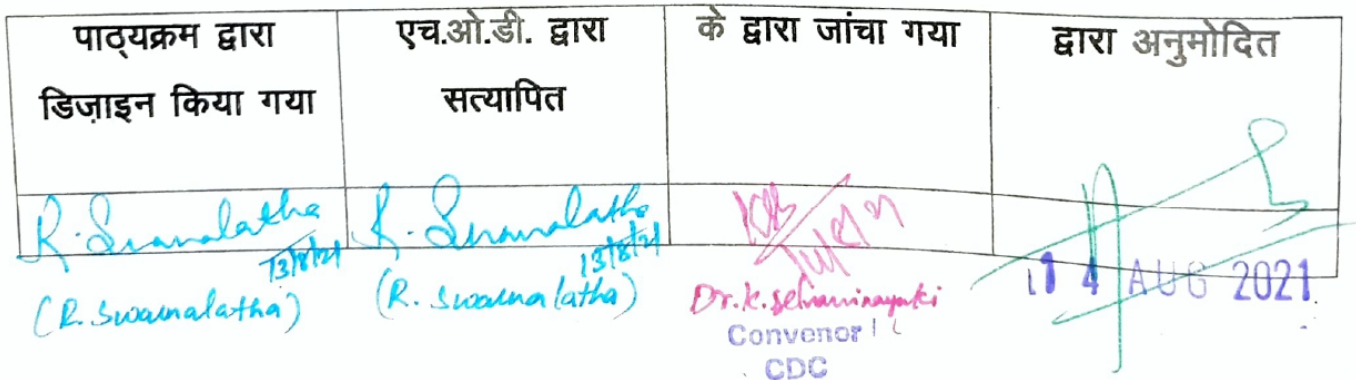 पाठ्यक्रम द्वारा
डिज़ाइन किया गया
एच.ओ.डी. द्वारा
सत्यापित
के द्वारा जांचा गया
द्वारा अनुमोदित
R. Swarnalatha
13/8/21
(R. Swarnalatha)
R. Swarnalatha
13/8/21
(R. Swarnalatha)
Dr. K.
Convenor
CDC
14 AUG 2021